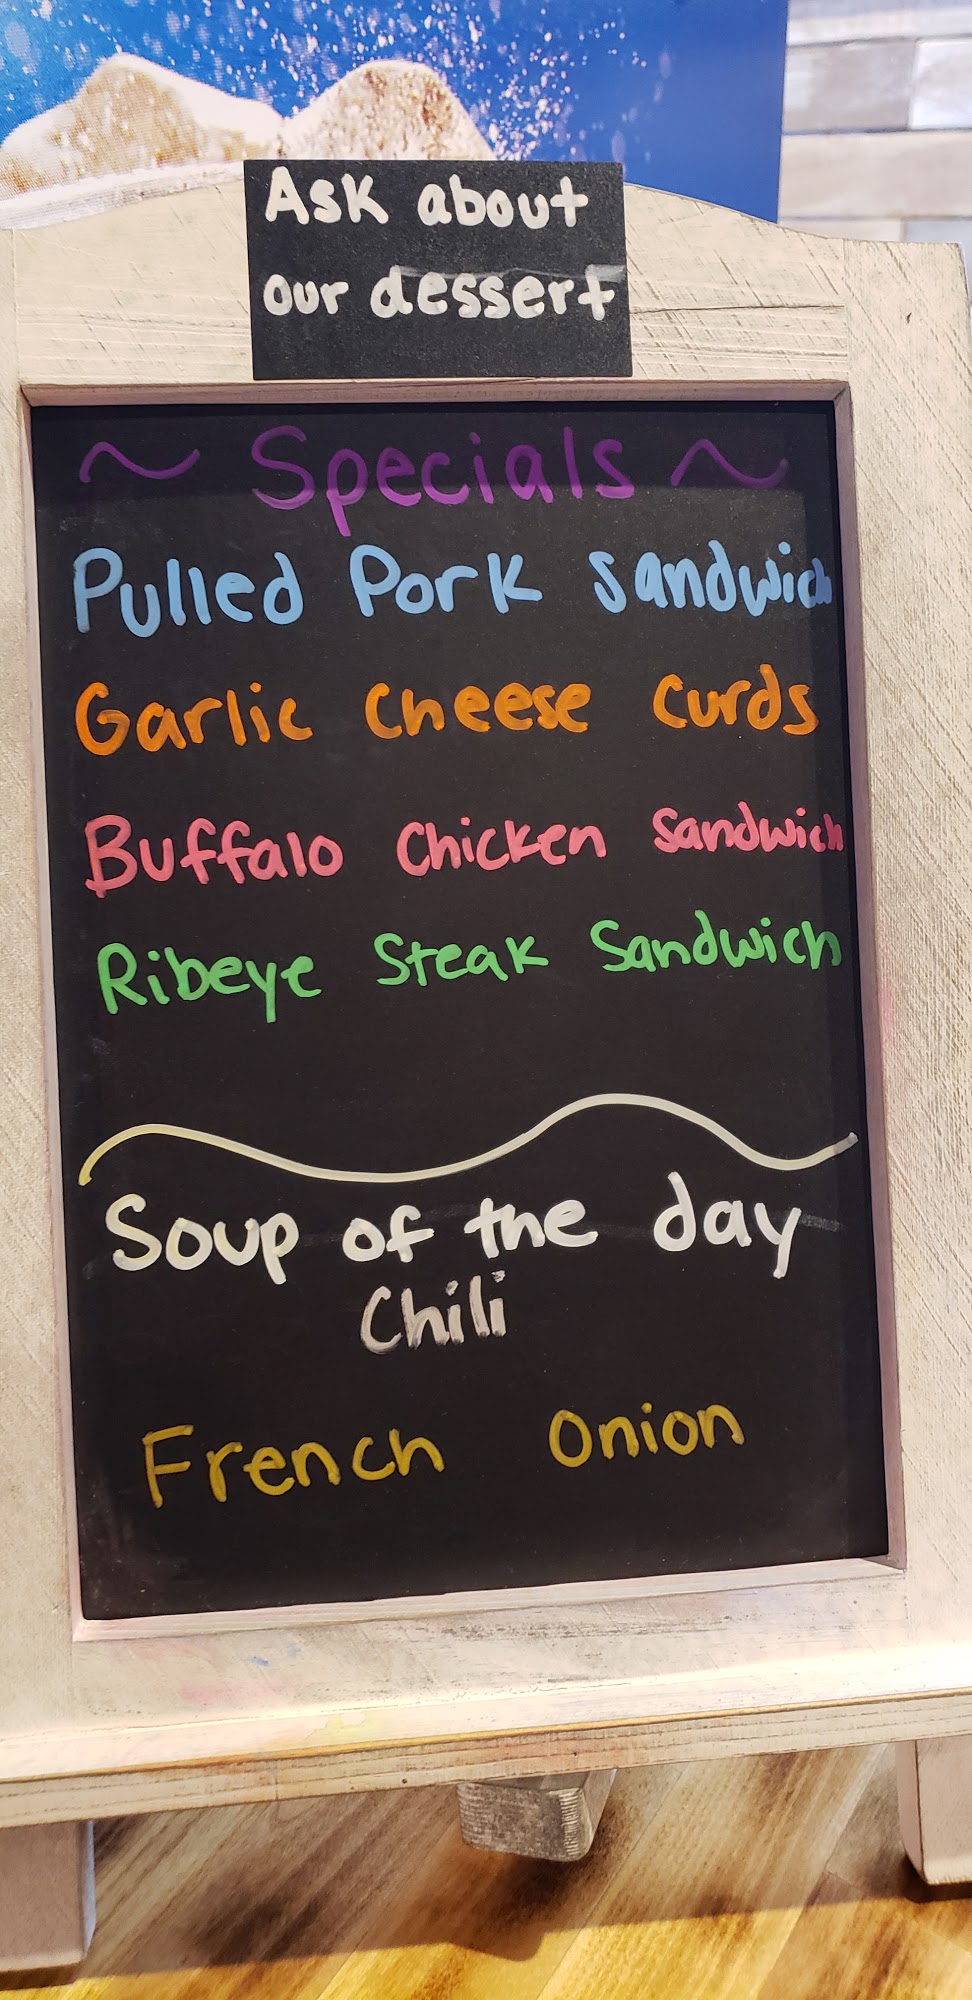 Ask about
our dessert
~ Specials ~
Pulled Pork Sandwich
Garlic Cheese Curds
Buffalo Chicken Sandwich
Ribeye Steak Sandwich
Soup of the day
Chili
French Onion